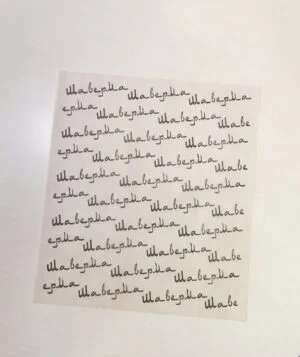 Шаверма Шаверма Шаверма
ерма Шаверма Шаверма Шаве
Шаверма Шаверма Шаверма
ерма Шаверма Шаверма Шаве
Шаверма Шаверма Шаверма
ерма Шаверма Шаверма Шаве
Шаверма Шаверма Шаверма
ерма Шаверма Шаверма Шаве
Шаверма Шаверма Шаверма
ерма Шаверма Шаверма Шаве